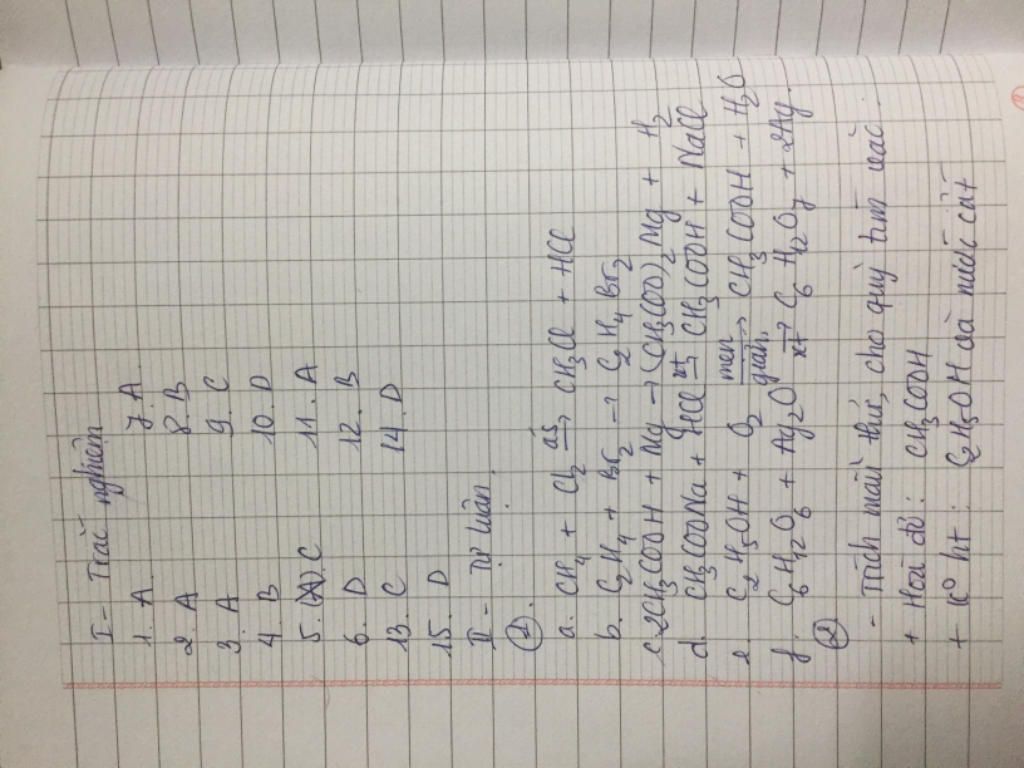 I - Trắc nghiệm
1. A 7. A
2. A 8. B
3. A 9. C
4. B 10. D
5. (A) C 11. A
6. D 12. B
13. C 14. D
15. D
II - Tự luận.
①.
a. CH4 + Cl2 as→ CH3Cl + HCl
b. C2H4 + Br2 → C2H4Br2
c. 2CH3COOH + Mg → (CH3COO)2Mg + H2
d. CH3COONa + HCl xt→ CH3COOH + NaCl
e. C2H5OH + O2 men giấm→ CH3COOH + H2O
f. C6H12O6 + Ag2O xt→ C6H12O7 + 2Ag.
②
- Trích mẫu thử, cho quỳ tím vào.
+ Hoá đỏ: CH3COOH
+ K° ht: C2H5OH và nước cất